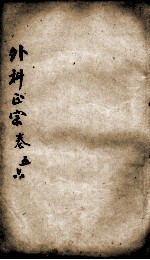 外科正宗卷五六